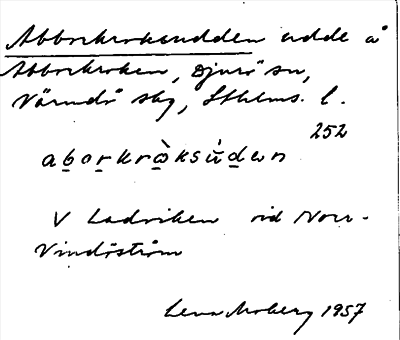 Abborkroksudden udde å
Abborkroken, Djurö sn,
Värmdö skg, Sthlms. l.
252
aborkrὼksù̇den
V Ladviken vid Norr-
Vindöström
Lena Moberg 1957